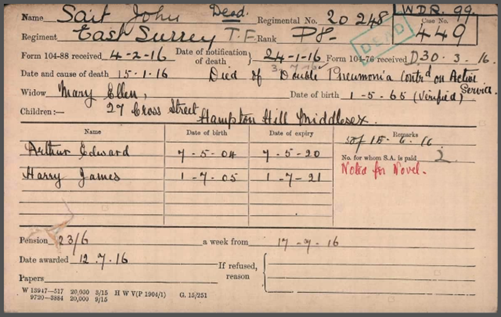 Name Sait John Dead. Regimental No. 20248 W.D.R. 99.
Regiment East Surrey T.F. Rank Pte. Case No. 449
Form 104-88 received 4-2-16 Date of notification of death 24-1-16 Form 104-76 received D30.3.16.
Date and cause of death 15.1.16 Died of Double Pneumonia Contrd on Active Service.
Widow Mary Ellen, Date of birth 1-5-65 (Verified)
Children:— 27 Cross Street, Hampton Hill Middlesex.
Name Date of birth Date of expiry Remarks
Arthur Edward 7-5-04 7-5-20 15-6-16
No. for whom S.A. is paid 2
Harry James 1-7-05 1-7-21 Noted for Novel.
Pension 23/6 a week from 17-7-16
Date awarded 12.7.16 If refused, reason
Papers
W 13947—517 20,000 5/15 H W V(P 1904/1) G. 15/251
9720—3884 20,000 9/15